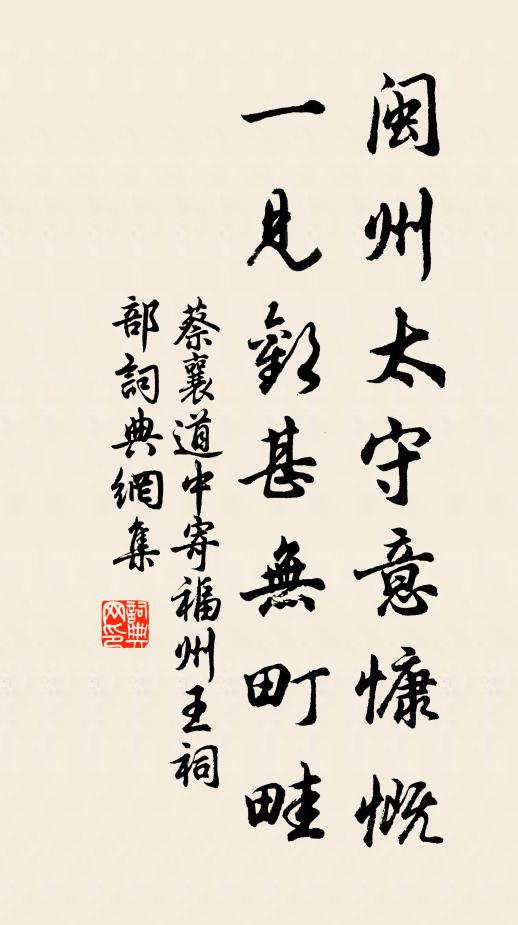 閩州太守意慷慨
一見歡甚無町畦
蔡襄道中寄福州王祠
部詞典網集
詞典
网印